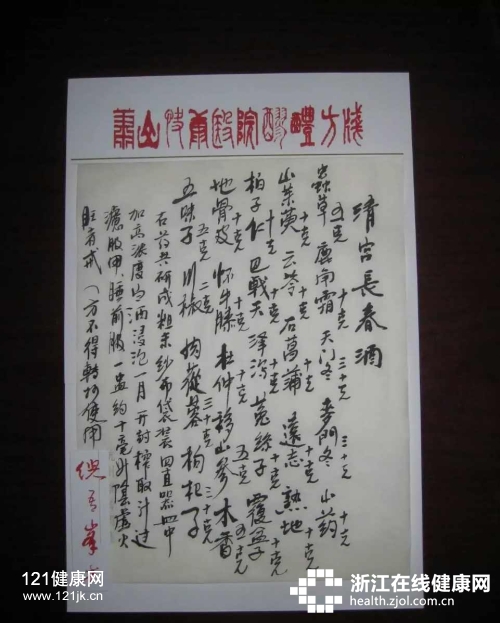 山 院醪醴方牋
清宫長春酒
蟲草 鹿角霜 天门冬 麦門冬 山药
五克 十克 三十克 三十克 十克
山茱萸 云苓 石菖蒲 遠志 熟地
十克 十克 十克 十克 十克
柏子仁 巴戟天 泽泻 菟絲子 覆盆子
十克 十克 十克 十克
地骨皮 怀牛膝 杜仲 移山参 木香
十克 十克 十克 五克 五克
五味子 川椒 肉蓯蓉 枸杞子
五克 二克 三十克 三十克
右药共研成粗末纱布袋装 器皿中
加高浓度白酒浸泡一月开封榨取汁过
濾服用、睡前服一盅约十毫升陰虚火
旺者戒（方不得轉抄使用
倪 峯
121健康网
www.121jk.cn
浙江在线健康网
health.zjol.com.cn